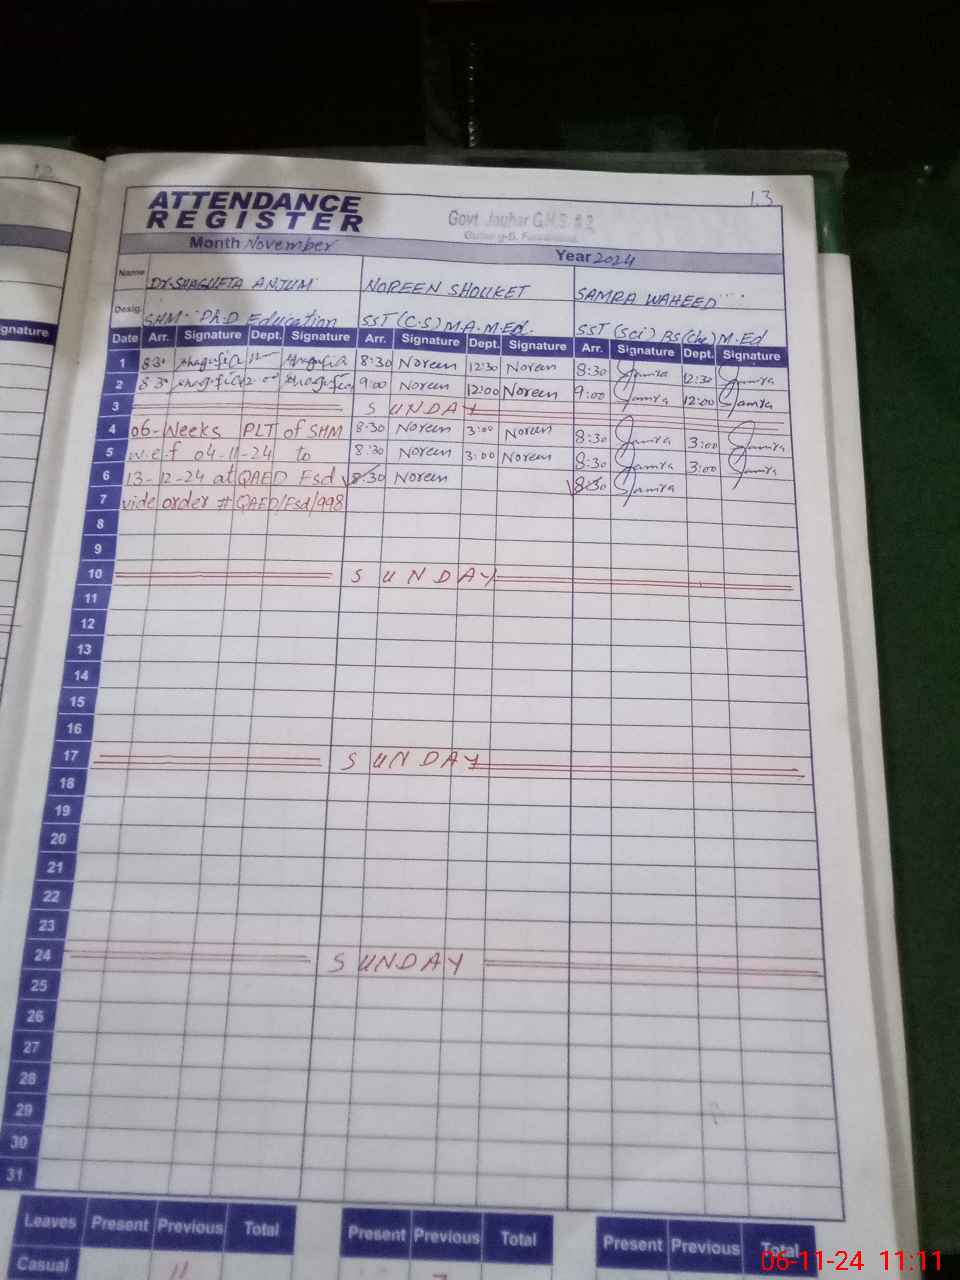 13
ATTENDANCE
REGISTER
Govt Jauhar G.H.S. # 2
Month November
Year 2024
Name Dr. SHAGUFTA ANJUM NOREEN SHOUKET SAMRA WAHEED
Desig. SHM. Ph.D Education SST (C.S) M.A. M.Ed. SST (Sci) BS(Che) M.Ed
gnature
Date Arr. Signature Dept. Signature Arr. Signature Dept. Signature Arr. Signature Dept. Signature
1 8:30 Noreen 12:30 Noreen 8:30 Samra 12:30 Samra
2 9:00 Noreen 12:00 Noreen 9:00 Samra 12:00 Samra
3 SUNDAY
4 06-Weeks PLT of SHM 8:30 Noreen 3:00 Noreen 8:30 Samra 3:00 Samra
5 w.e.f 04-11-24 to 8:30 Noreen 3:00 Noreen 8:30 Samra 3:00 Samra
6 13-12-24 at QAED Fsd 8:30 Noreen 8:30 Samra
7 vide order # QAED/Fsd/998
8
9
10 SUNDAY
11
12
13
14
15
16
17 SUNDAY
18
19
20
21
22
23
24 SUNDAY
25
26
27
28
29
30
31
Leaves Present Previous Total Present Previous Total Present Previous Total
Casual 11
06-11-24 11:11